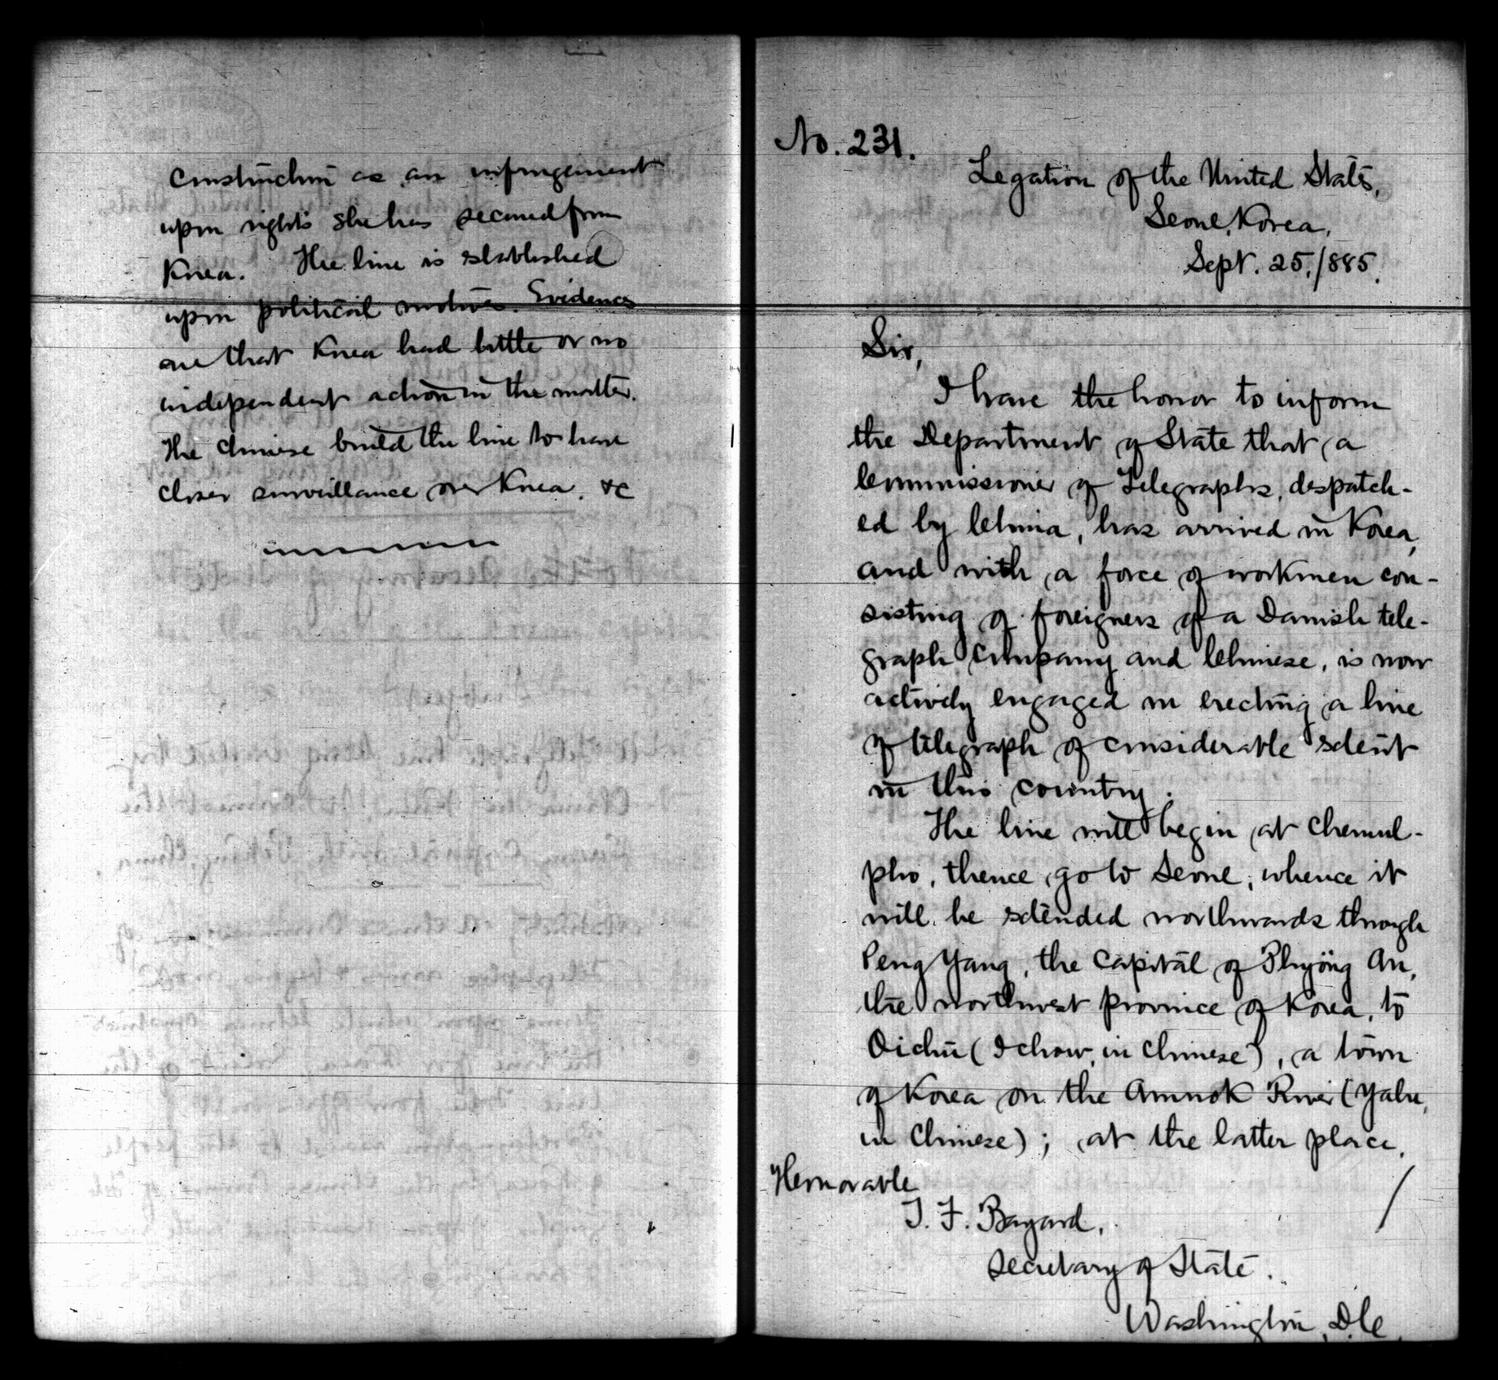 construction as an infringement
upon rights she has secured from
Korea. The line is established
upon political motives. Evidences
are that Korea had little or no
independent action in the matter.
The Chinese build the line to have
closer surveillance over Korea. &c
No. 231.
Legation of the United States,
Seoul, Korea,
Sept. 25, 1885.
Sir,
I have the honor to inform
the Department of State that a
Commissioner of Telegraphs, despatch-
ed by China, has arrived in Korea,
and with a force of workmen con-
sisting of foreigners of a Danish tele-
graph company and Chinese, is now
actively engaged in erecting a line
of telegraph of considerable extent
in this country.
The line will begin at Chemul-
pho, thence go to Seoul, whence it
will be extended northwards through
Peng Yang, the capital of Phyöng An,
the northwest province of Korea, to
Oichu (Ichow, in Chinese), a town
of Korea on the Amnok River (Yalu,
in Chinese); at the latter place,
Honorable
T. F. Bayard,
Secretary of State.
Washington, D.C.